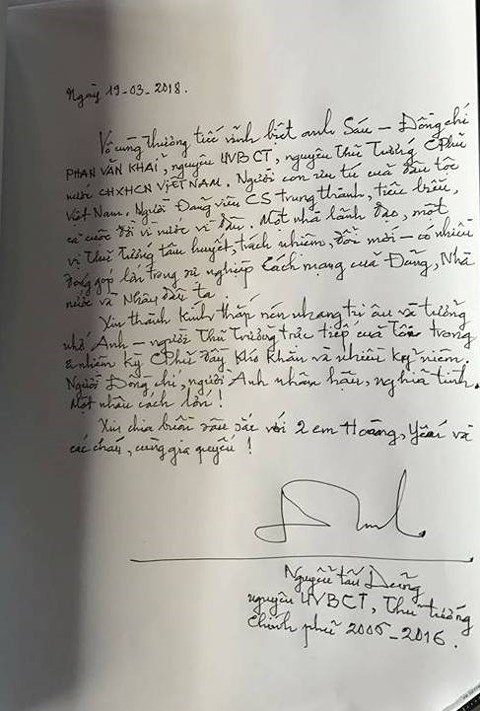 Ngày 19-03-2018.
Vô cùng thương tiếc vĩnh biệt anh Sáu - Đồng chí
PHAN VĂN KHẢI, nguyên UVBCT, nguyên Thủ Tướng CPhủ
nước CHXHCN VIỆT NAM. Người con ưu tú của dân tộc
Việt Nam. Người Đảng viên CS trung thành, tiêu biểu,
cả cuộc đời vì nước vì dân. Một nhà lãnh đạo, một
vị Thủ Tướng tâm huyết, trách nhiệm, đổi mới - có nhiều
đóng góp lớn trong sự nghiệp Cách mạng của Đảng, Nhà
nước và Nhân dân ta.
Xin thành kính thắp nén nhang tri ân và tưởng
nhớ Anh - người Thủ Trưởng trực tiếp của tôi trong
2 nhiệm kỳ CPhủ đầy khó khăn và nhiều kỷ niệm.
Người Đồng chí, người Anh nhân hậu, nghĩa tình.
Một nhân cách lớn!
Xin chia buồn sâu sắc với 2 em Hoàng, Yến và
các cháu, cùng gia quyến!
Nguyễn Tấn Dũng
nguyên UVBCT, Thủ tướng
Chính phủ 2006-2016.